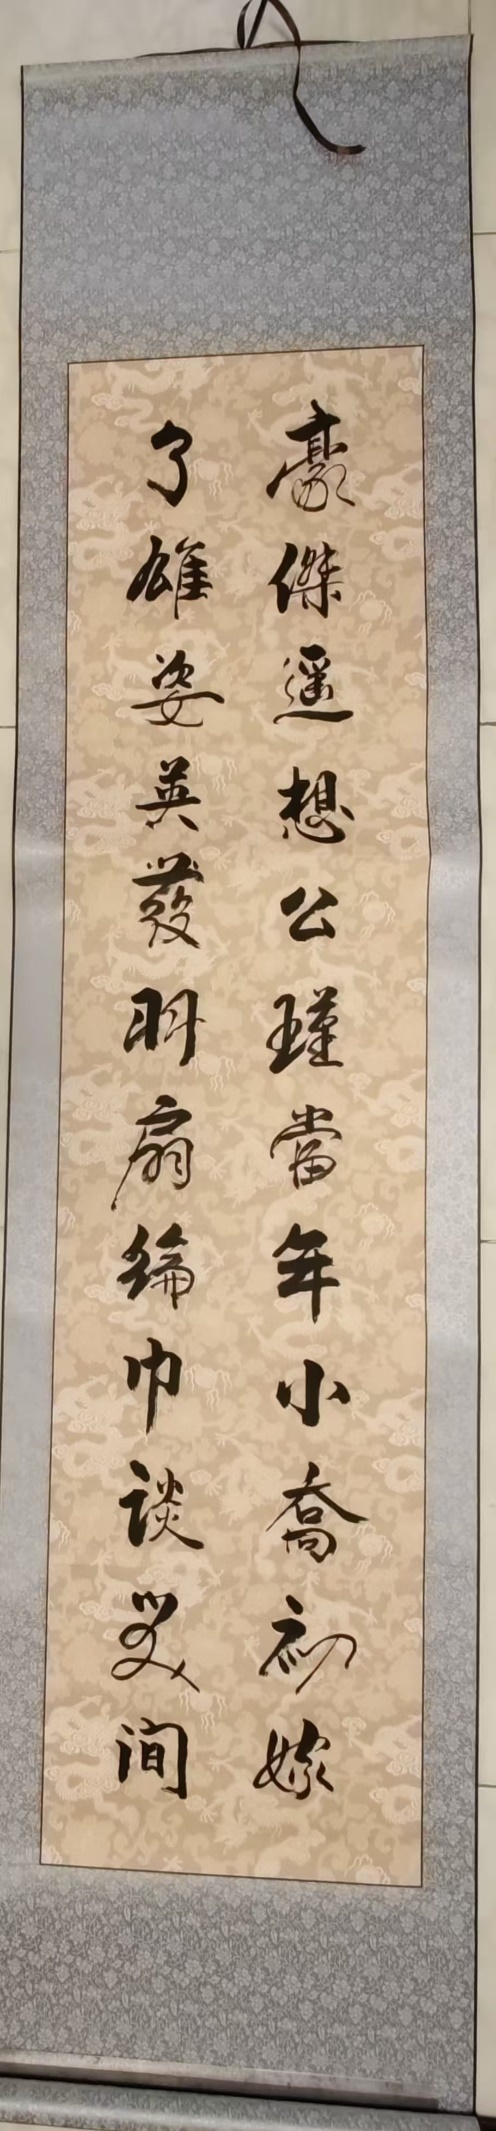 豪傑遥想公瑾當年小喬初嫁
了雄姿英發羽扇綸巾談笑間